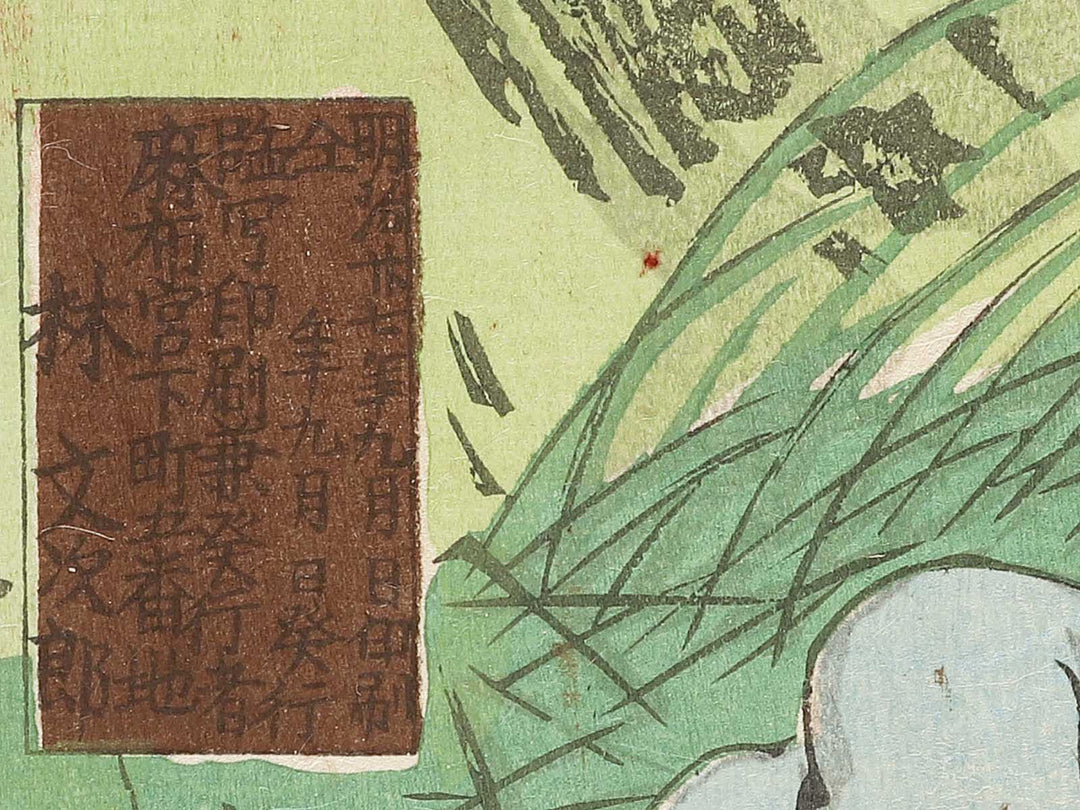 明治廿七年九月 日印刷
仝 年九月 日発行
臨写印刷兼発行者
麻布宮下町五番地
林文次郎